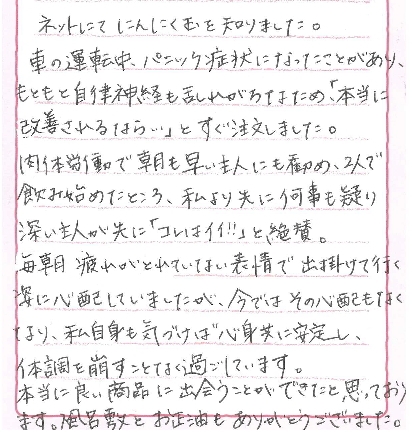 ネットにて にんにくむを知りました。
車の運転中、パニック症状になったことがあり、
もともと自律神経も乱れがちなため、「本当に
改善されるなら…」とすぐ注文しました。
肉体労働で朝も早い主人にも勧め、2人で
飲み始めたところ、私より先に何事も疑り
深い主人が先に「コレはイイ!!」と絶賛。
毎朝 疲れがとれていない表情で出掛けて行く
姿に心配していましたが、今ではその心配もなく
なり、私自身も気づけば心身共に安定し、
体調を崩すことなく過ごしています。
本当に良い商品に出会うことができたと思っており
ます。風呂敷とお正油もありがとうございました。